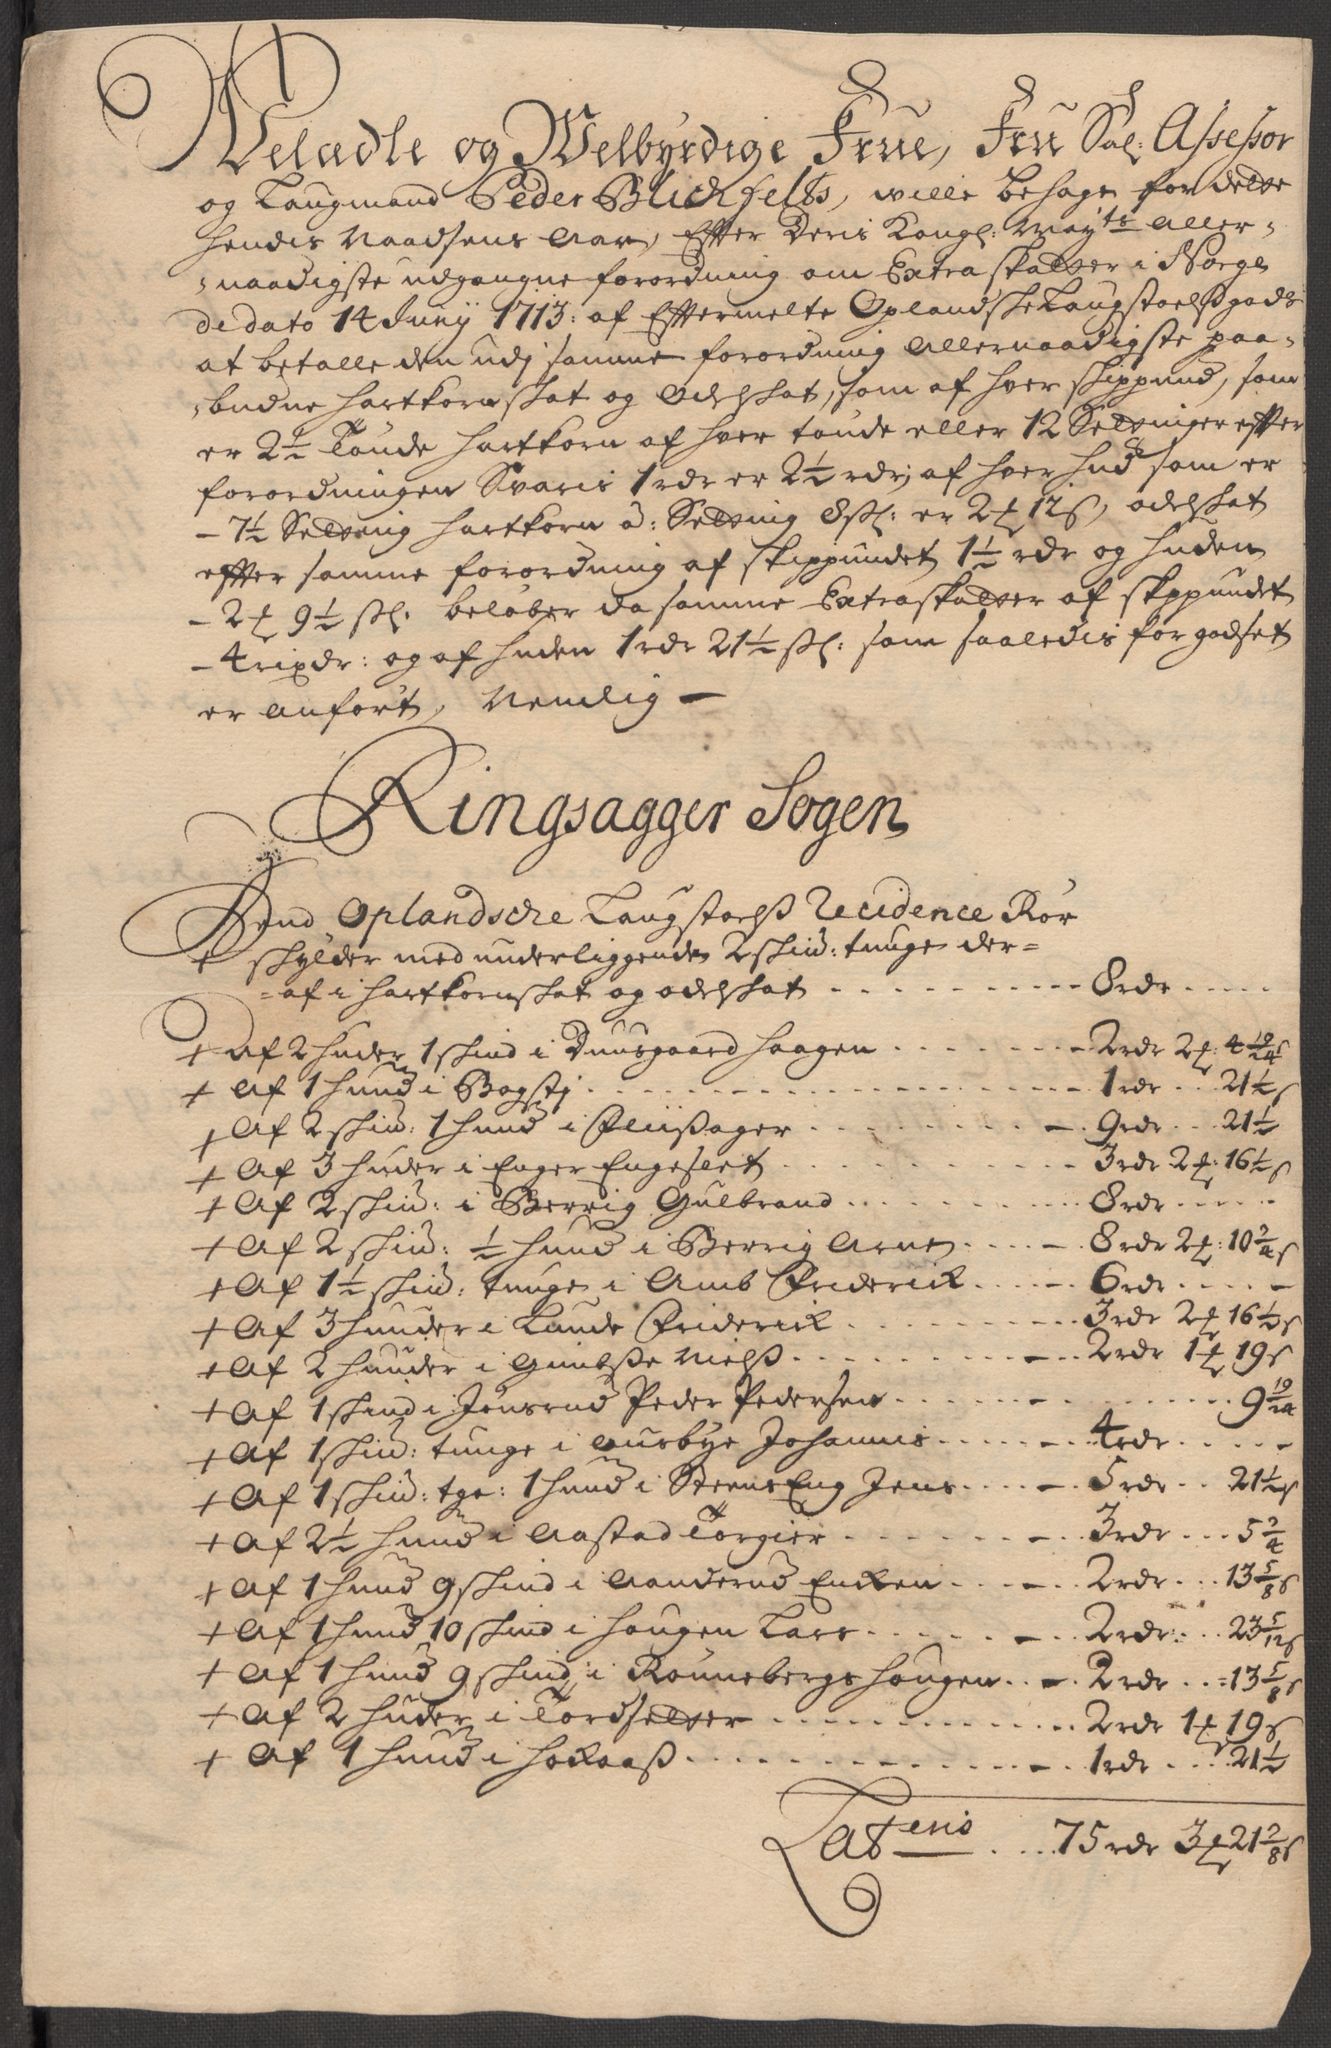 Velædle og Welbyrdige Frue, Fru Sal: Assessor
og Laugmand Peder Blichfelts, wille behage for dette
hendis Naadsens Aar, Efter Deris Kongl: Mayts aller-
-naadigste udgangne forordning om Extra skatter i Norge
de dato 14 Juny 1713: af Eftermelte Oplandske Laugstoelsgods
at betalle den udj samme forordning Allernaadigste paa-
-budne hartkornskat og Odelskat, som af hver skippund, som
er 2½ Tønde hartkorn af hver tønde eller 12 Setninger efter
forordningen Svaris 1 rdr er 2½ rdr, af hver hud som er
- 7½ Setning hartkorn à: Setning 8 sk: er 2 ort 12 s, odelskat
efter samme forordning af skippundet 1½ rdr og huden
- 2 ort 9½ sk: beløber da samme Extraskatter af skippundet
- 4 rixdr: og af huden 1 rdr 21½ sk: som saaledis for godset
er anført, Nemlig —
Ringsagger Sogen
Dend Oplandsche Laugstoels Recidence Rør
+ skylder med underliggende 2 skin: tunge der=
=af i hartkornskat og odelskat - - - 8 rdr - - -
+ Af 2 huder 1 skind i Duusgaard haagen - - - 2 rdr 2 ort: 4 19/24 s
+ Af 1 hund i Bogstj - - - 1 rdr - - 21½ s
+ Af 2 skin: 1 hund i Fliisager - - - 9 rdr - - 21½
+ Af 3 huder i Enger Engeset - - - 3 rdr 2 ort: 16½ s
+ Af 2 skin: i Berrig Gulbrand - - - 8 rdr - - -
+ Af 2 skin: ½ hund i Berrig Arne - - - 8 rdr 2 ort: 10 3/4 s
+ Af 1½ skin: tunge i Amb Friderick - - - 6 rdr - - -
+ Af 3 hunder i Lunde Friderick - - - 3 rdr 2 ort 16½ s
+ Af 2 hunder i Gimbse Niels - - - 2 rdr 1 ort 19 s
+ Af 1 skind i Jønsrud Peder Pedersen - - - 9 19/24
+ Af 1 skin: tunge i Ausbye Johannis - - - 4 rdr - - -
+ Af 1 skin: tge: 1 hund i Steens Eng Jens - - - 5 rdr - - 21½ s
+ Af 2½ hund i Aastad Torgier - - - 3 rdr - - 5 3/4
+ Af 1 hund 9 skind i Aanderud Encken - - - 2 rdr - - 13 5/8 s
+ Af 1 hund 10 skind i hougen Lars - - - 2 rdr: - - 23 5/12 s
+ Af 1 hund 9 skind i Rønnebergs hougen - - - 2 rdr - - 13 5/8 s
+ Af 2 huder i Tordsetter - - - 2 rdr 1 ort 19 s
+ Af 1 hund i hoRaas - - - 1 rdr - - 21½
Lateris - - - 75 rdr 3 ort 21 2/8 s